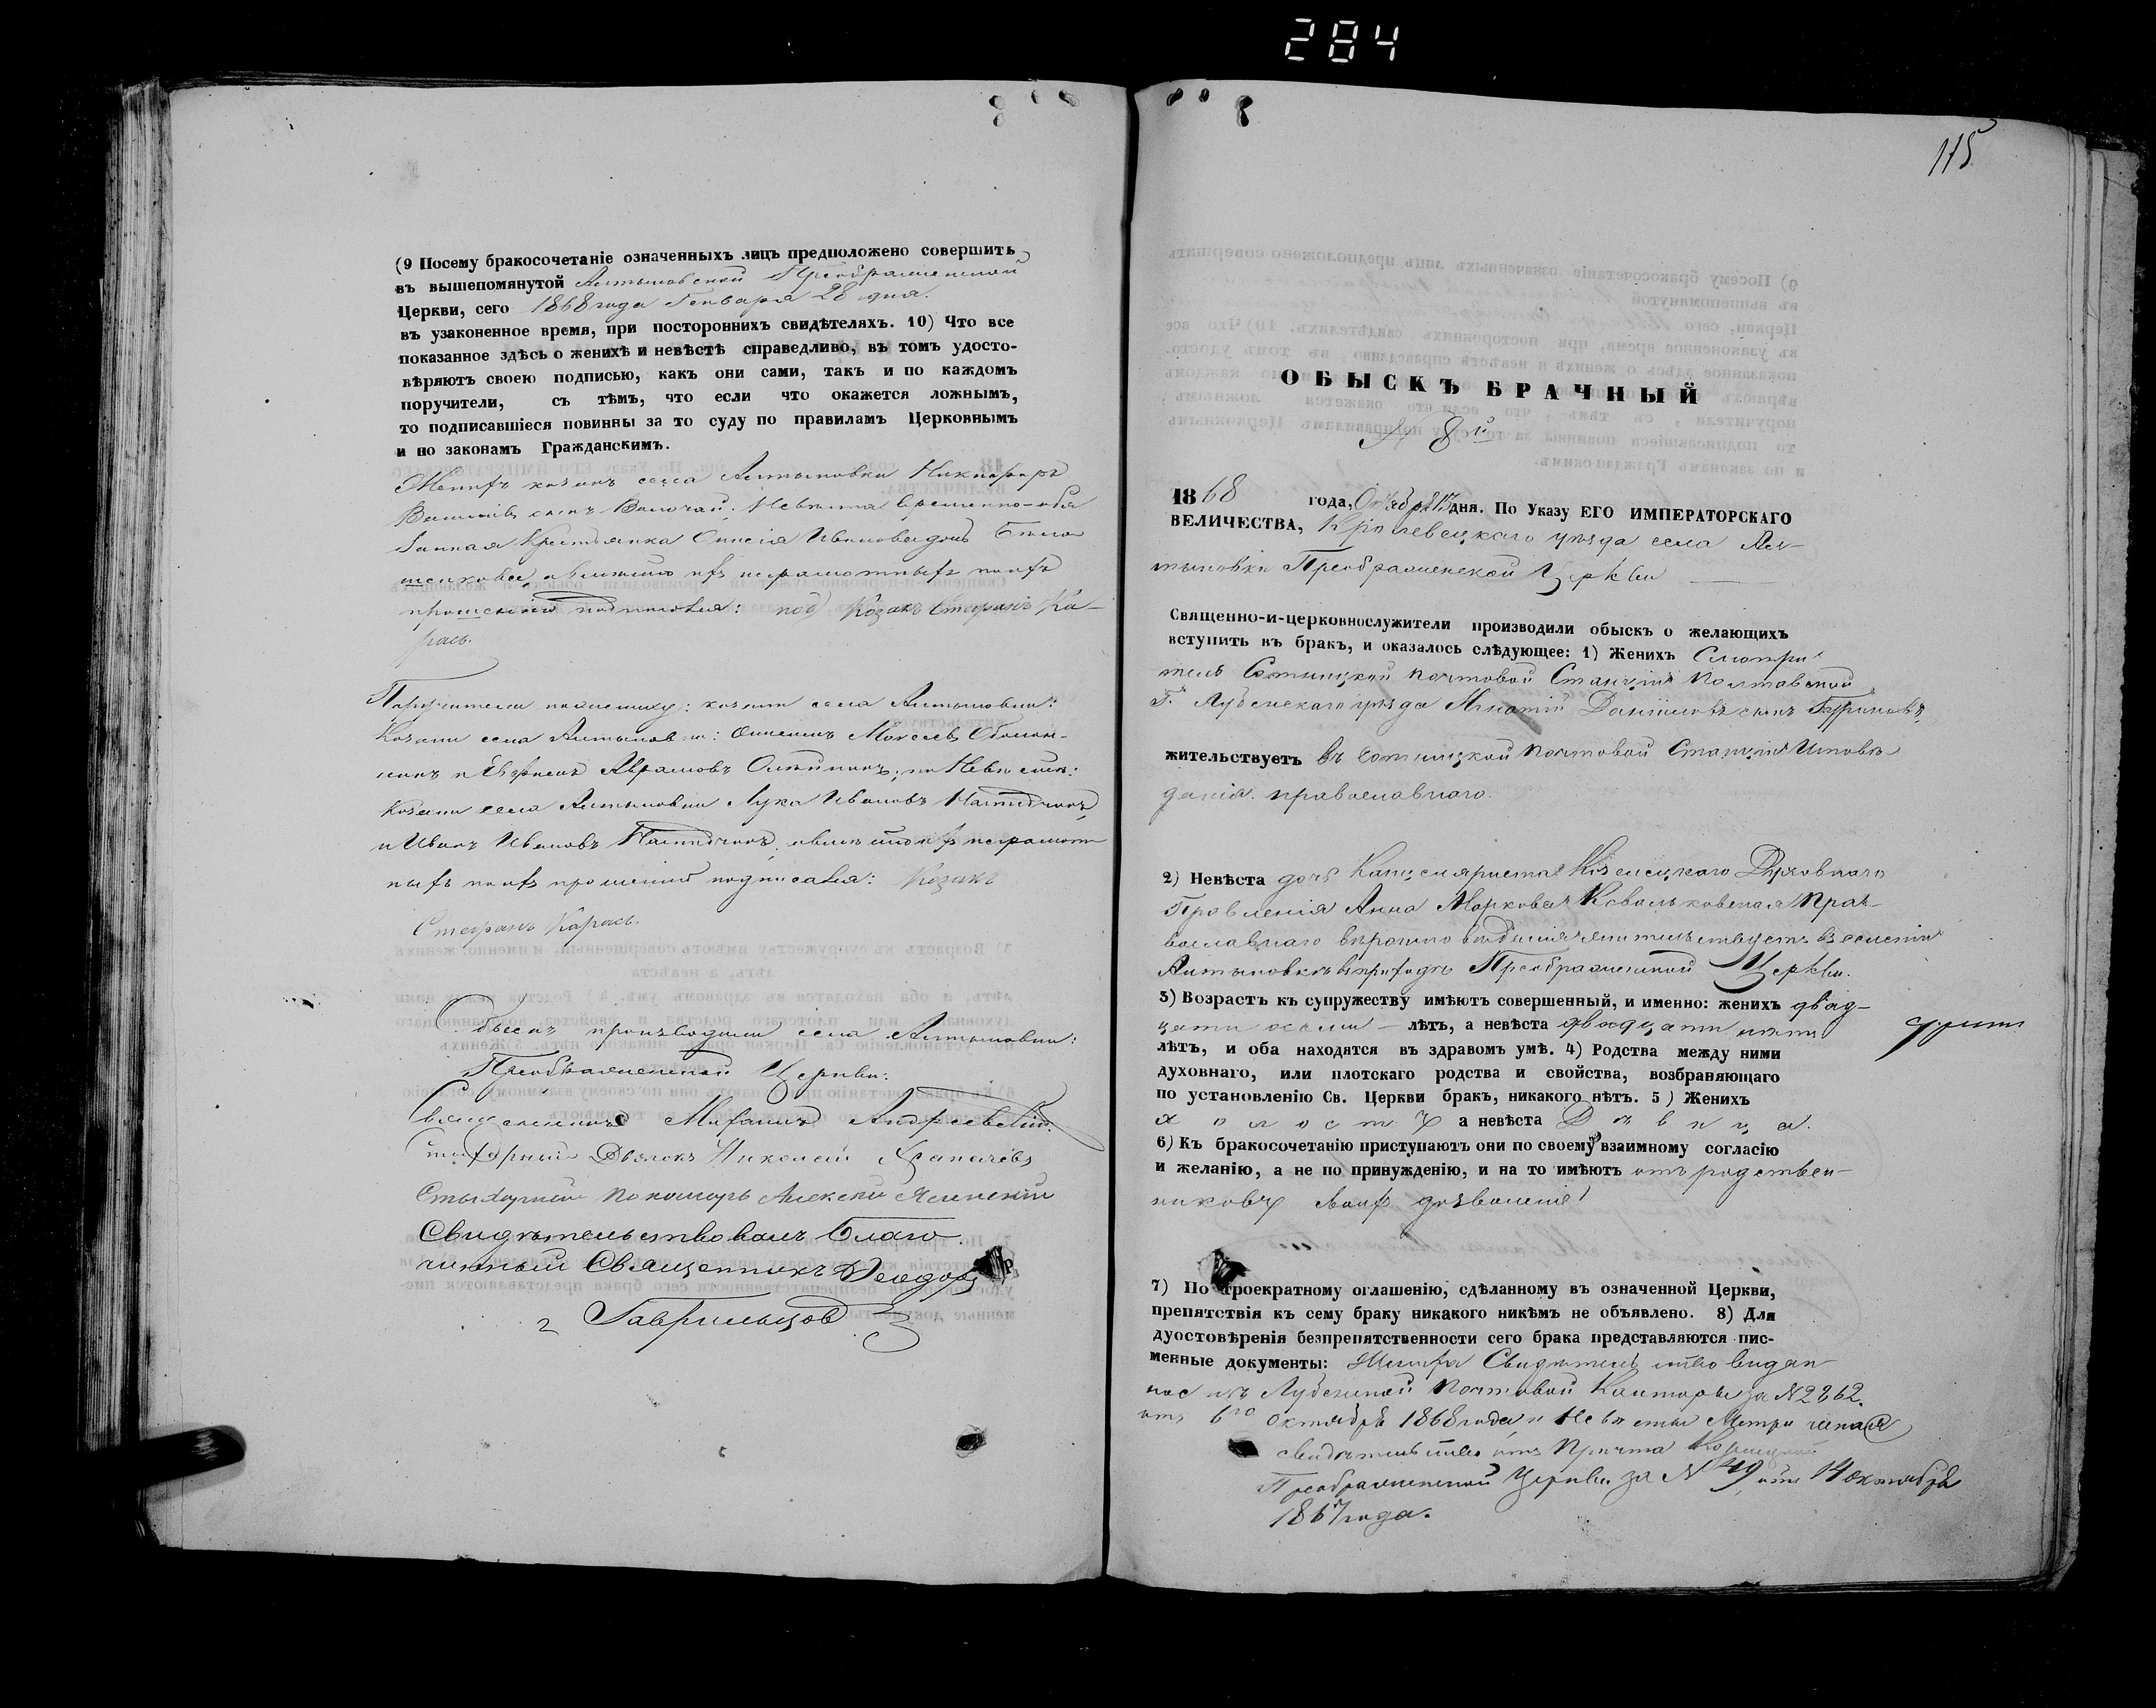 284
(9 Посему бракосочетаніе означенныхъ лицъ предположено совершить
въ вышепомянутой Алтыновской Преображенской
Церкви, сего 1868 года Генваря 28 дня.
въ узаконенное время, при постороннихъ свидѣтеляхъ. 10) Что все
показанное здѣсь о женихѣ и невѣстѣ справедливо, въ томъ удосто-
вѣряютъ своею подписью, какъ они сами, такъ и по каждомъ
поручители, съ тѣмъ, что если что окажется ложнымъ,
то подписавшіеся повинны за то суду по правиламъ Церковнымъ
и по законамъ Гражданскимъ.
Женихъ козакъ села Алтыновки Никифоръ
сынъ Невѣста временно-обя
занная Крестьянка Иванова дочь
неграмотныхъ
прошенію подписался: Козакъ Стефанъ Ка-
рась.
Поручители по жениху: козаки села Алтыновки:
Козаки села Алтыновки: Моисеевъ
и Аврамовъ по Невѣстѣ:
козаки села Алтыновки Лука Ивановъ
и Иванъ Ивановъ неграмот
ныхъ прошенію подписался: Козакъ
Стефанъ Карась.
Обыскъ производили села Алтыновки:
Преображенской Церкви:
Священникъ Михаилъ Андреевскій.
Стихарный Дьячокъ Николай
Стихарный Пономарь Алексѣй Ясенскій
Свидѣтельствовалъ Благо
чинный Священникъ Ѳеодоръ
Гаврильцов
115
ОБЫСКЪ БРАЧНЫЙ
№ 8й
1868 года, Октября 17 дня. По Указу ЕГО ИМПЕРАТОРСКАГО
ВЕЛИЧЕСТВА, Кролевецкаго уѣзда села Ал-
тыновки Преображенской Церкви
Священно-и-церковнослужители производили обыскъ о желающихъ
вступить въ бракъ, и оказалось слѣдующее: 1) Женихъ Смотри-
тель почтовой Станціи Полтавской
Г. Лубенскаго уѣзда Игнатій Даніиловъ сынъ
жительствуетъ въ почтовой Станціи Исповѣ-
данія православнаго.
2) Невѣста дочь Канцеляриста Козелецкаго Духовнаго
Правленія Анна Маркова Ковальковская Пра-
вославнаго вѣроисповѣданія жительствуетъ въ селеніи
Алтыновкѣ въ приходѣ Преображенской Церкви.
3) Возрастъ къ супружеству имѣютъ совершенный, и именно: женихъ двад-
цати осьми лѣтъ, а невѣста двадцати пяти
лѣтъ, и оба находятся въ здравомъ умѣ. 4) Родства между ними
духовнаго, или плотскаго родства и свойства, возбраняющаго
по установленію Св. Церкви бракъ, никакого нѣтъ. 5) Женихъ
холостъ а невѣста Дѣвица.
6) Къ бракосочетанію приступаютъ они по своему взаимному согласію
и желанію, а не по принужденію, и на то имѣютъ отъ родствен-
никовъ своихъ дозволеніе
7) По троекратному оглашенію, сдѣланному въ означенной Церкви,
препятствія къ сему браку никакого никѣмъ не объявлено. 8) Для
дуостовѣренія безпрепятственности сего брака представляются пис-
менные документы: Жениха Свидѣтельство видан
ное изъ Лубенской Почтовой Канторы за №2862.
отъ 6го Октября 1868 года и Невѣсты Метричная
свидѣтельство отъ Причта
Преображенской Церкви за № 49 отъ 14 октября
1867 года.